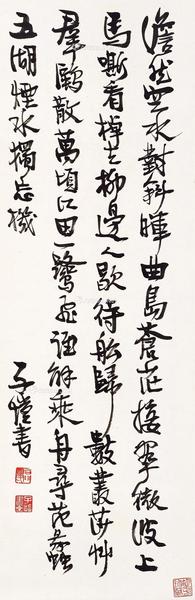 澹然空水對斜暉曲島蒼茫接翠微波上
馬嘶看棹去柳邊人歇待船歸數叢莎艸
羣鷗散萬頃江田一鷺飛誰解乘舟尋范蠡
五湖煙水獨忘機
子愷書